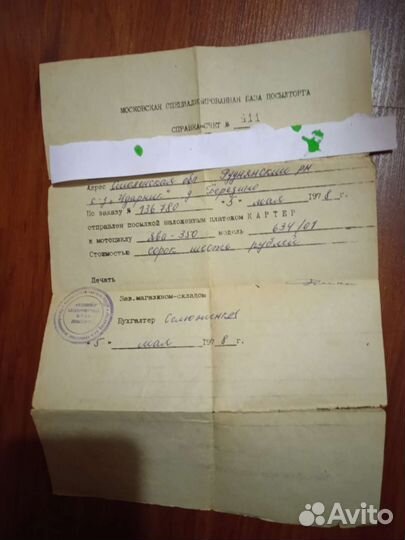 МОСКОВСКАЯ СПЕЦИАЛИЗИРОВАННАЯ БАЗА ПОСЫЛТОРГА
СПРАВКА-СЧЕТ № 611
Адрес Смоленская обл Руднянский рн
с-з "Ударник" д. Березино
По заказу № 736780 "5" мая 1978 г.
отправлен посылкой наложенным платежом КАРТЕР
к мотоциклу Ява-350 модель 634/01
Стоимостью сорок шесть рублей
Печать
Зав.магазином-складом
Бухгалтер
"5" мая 1978 г.
Avito